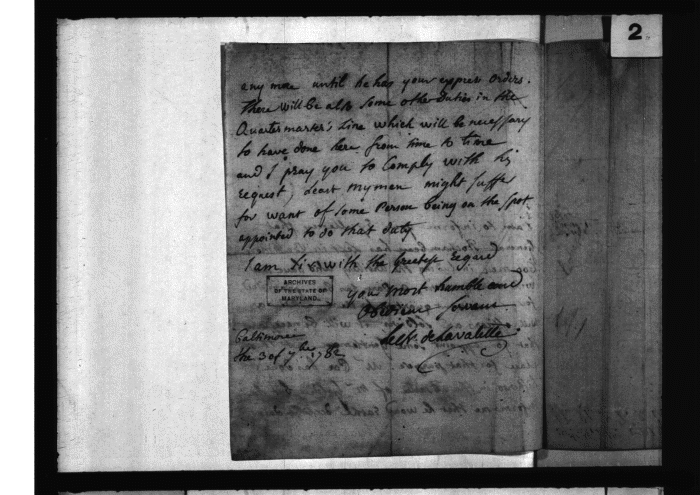 2
any more until he has your express orders.
There will be also some other Duties in the
Quartermaster's Line which will be necessary
to have done here from time to time
and I pray you to Comply with his
request, Least my men might Suffer
for want of some Person being on the Spot
appointed to do that duty
I am Sir with the greatest regard
your most humble and
Obedient Servant
de Lavalette
ARCHIVES
OF THE STATE OF
MARYLAND
Baltimore
the 3 of 7bre 1782